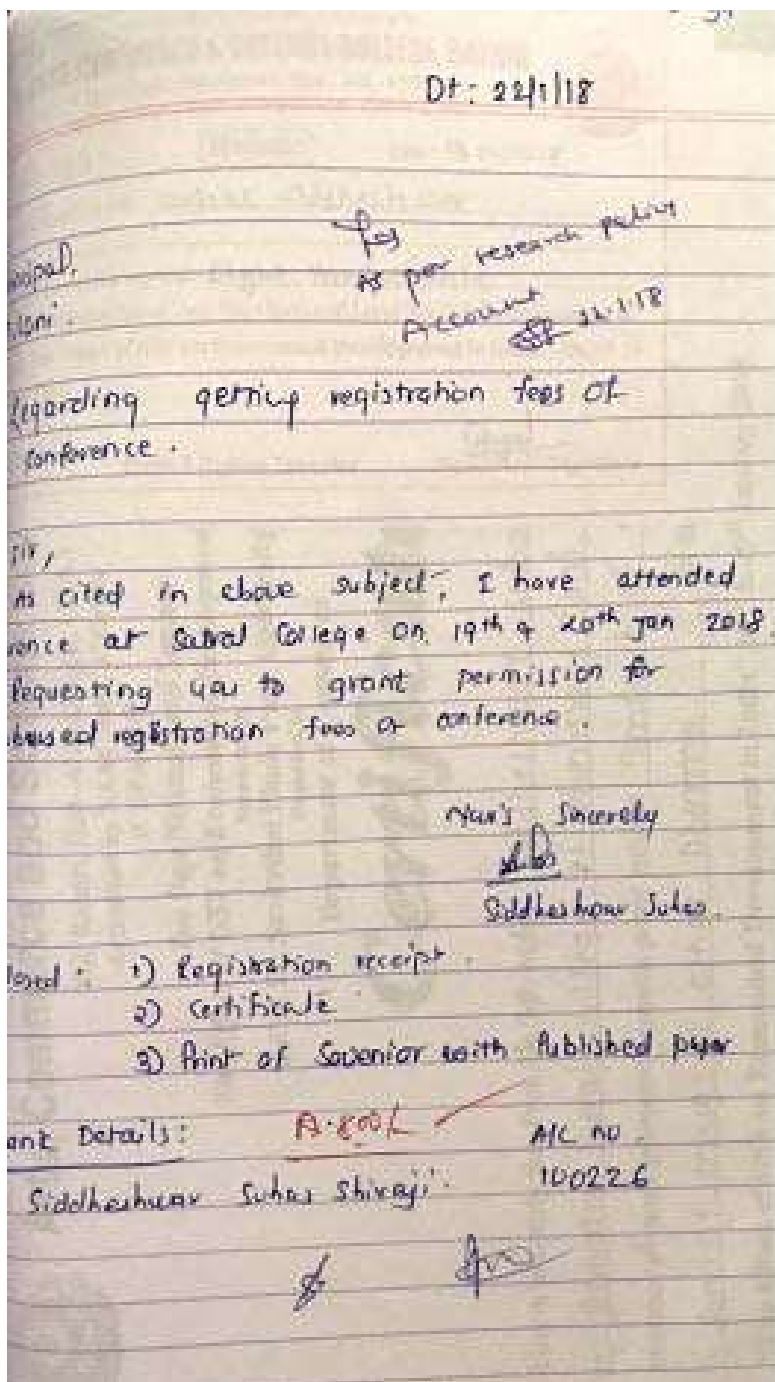 Dt: 22/1/18
As per research policy
Account
22.1.18
cipal,
Regarding getting registration fees of
conference.
Sir,
As cited in above subject, I have attended
rence at College on 19th & 20th Jan 2018.
Requesting you to grant permission for
bursed registration fees of conference.
Your's Sincerely
Siddheshwar Suhas.
losed : 1) Registration receipt.
2) Certificate
3) Print of Sovenior with Published paper
ank Details: A/C no.
Siddheshwar Suhas Shivaji. 100226